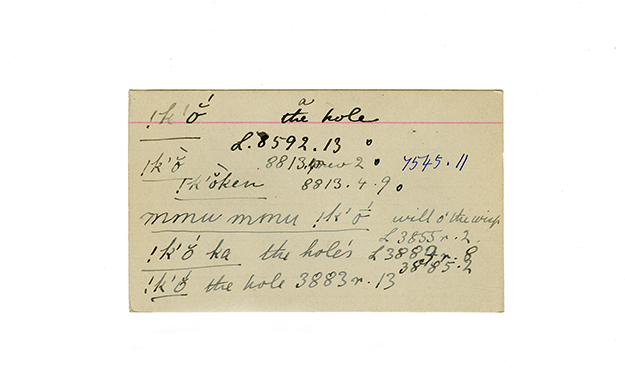 !k'ŏ́ a the hole
L.8592.13
!k'ŏ̀ 8813. rev 2 7545.11
!k'ŏ̀ken 8813.4.9
mmu mmu !k'ŏ́ will o' the wisp
L 3855 r.2.
!k'ŏ́ ka the hole's L 3889 r.8
3885.2
!k'ŏ́ the hole 3883 r.13